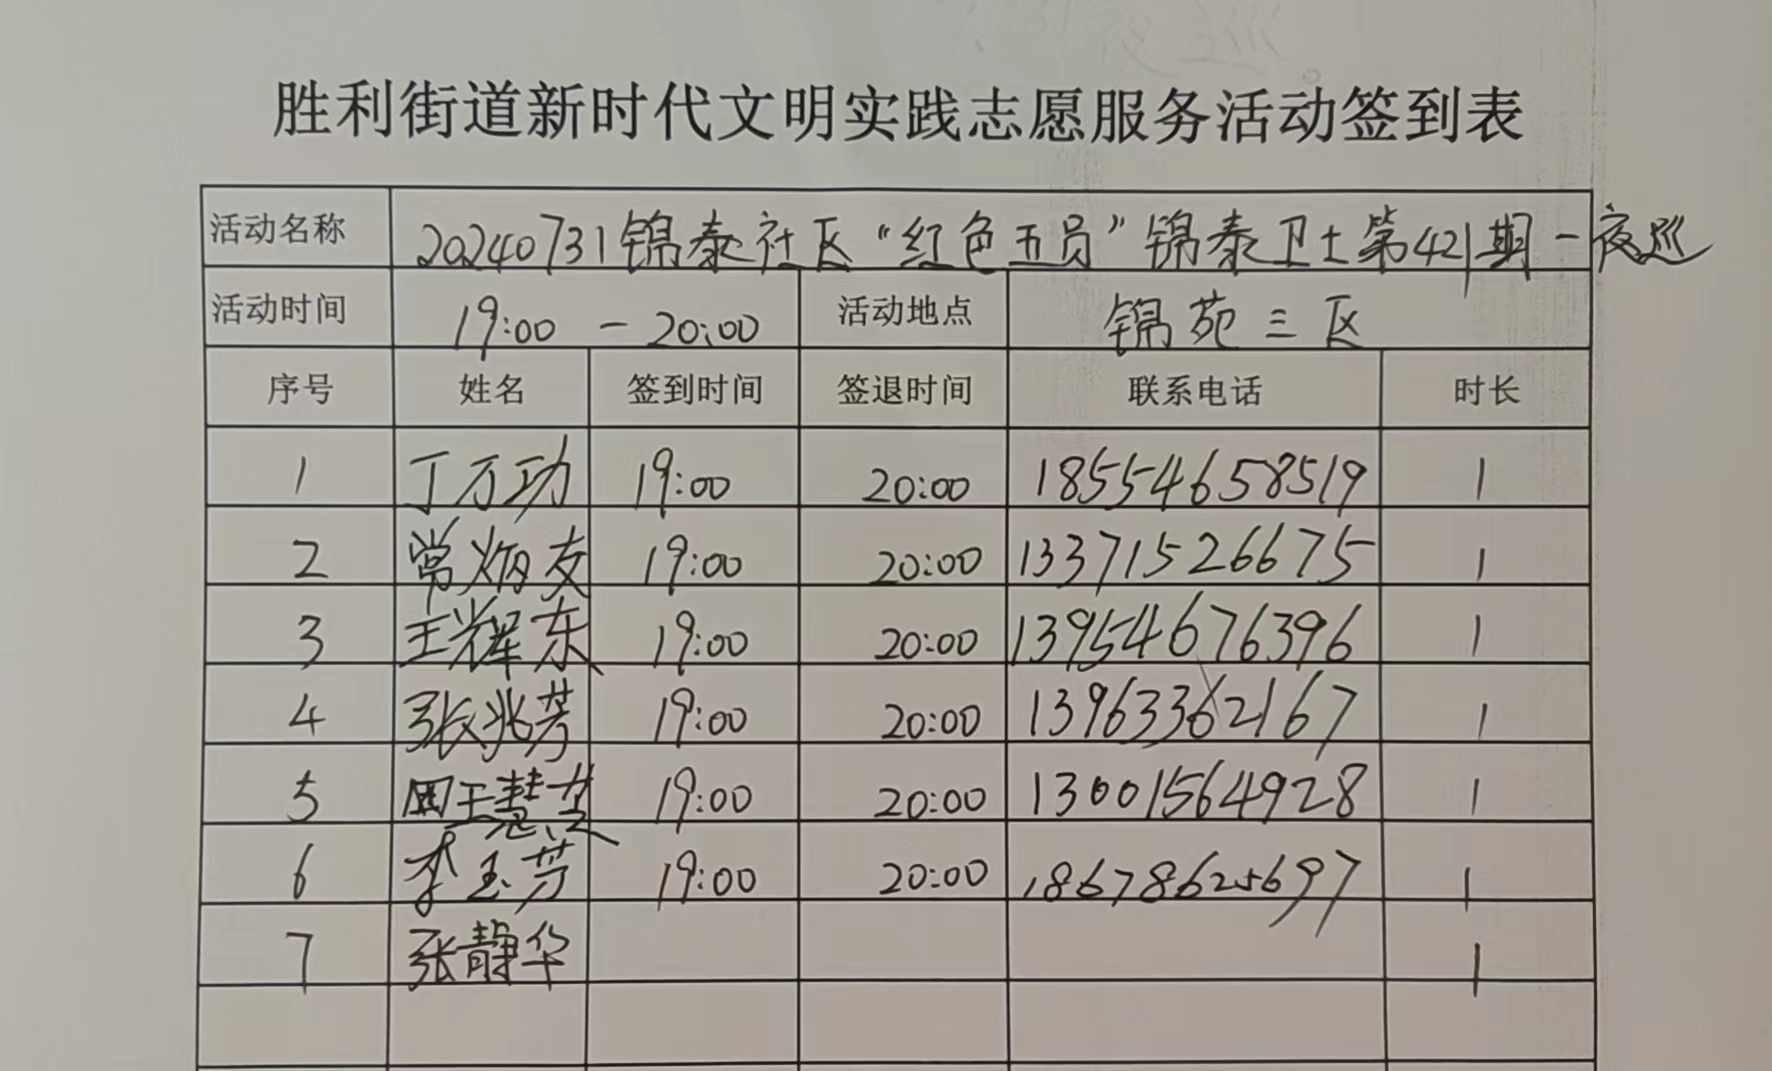 胜利街道新时代文明实践志愿服务活动签到表
活动名称 20240731锦泰社区“红色五员”锦泰卫士第421期-夜巡
活动时间 19:00 - 20:00 活动地点 锦苑三区
序号 姓名 签到时间 签退时间 联系电话 时长
1 丁万功 19:00 20:00 18554658519 1
2 常炳友 19:00 20:00 13371526675 1
3 王辉东 19:00 20:00 13954676396 1
4 张兆芳 19:00 20:00 13963362167 1
5 王慧芝 19:00 20:00 13001564928 1
6 李玉芳 19:00 20:00 18678625697 1
7 张静华 1